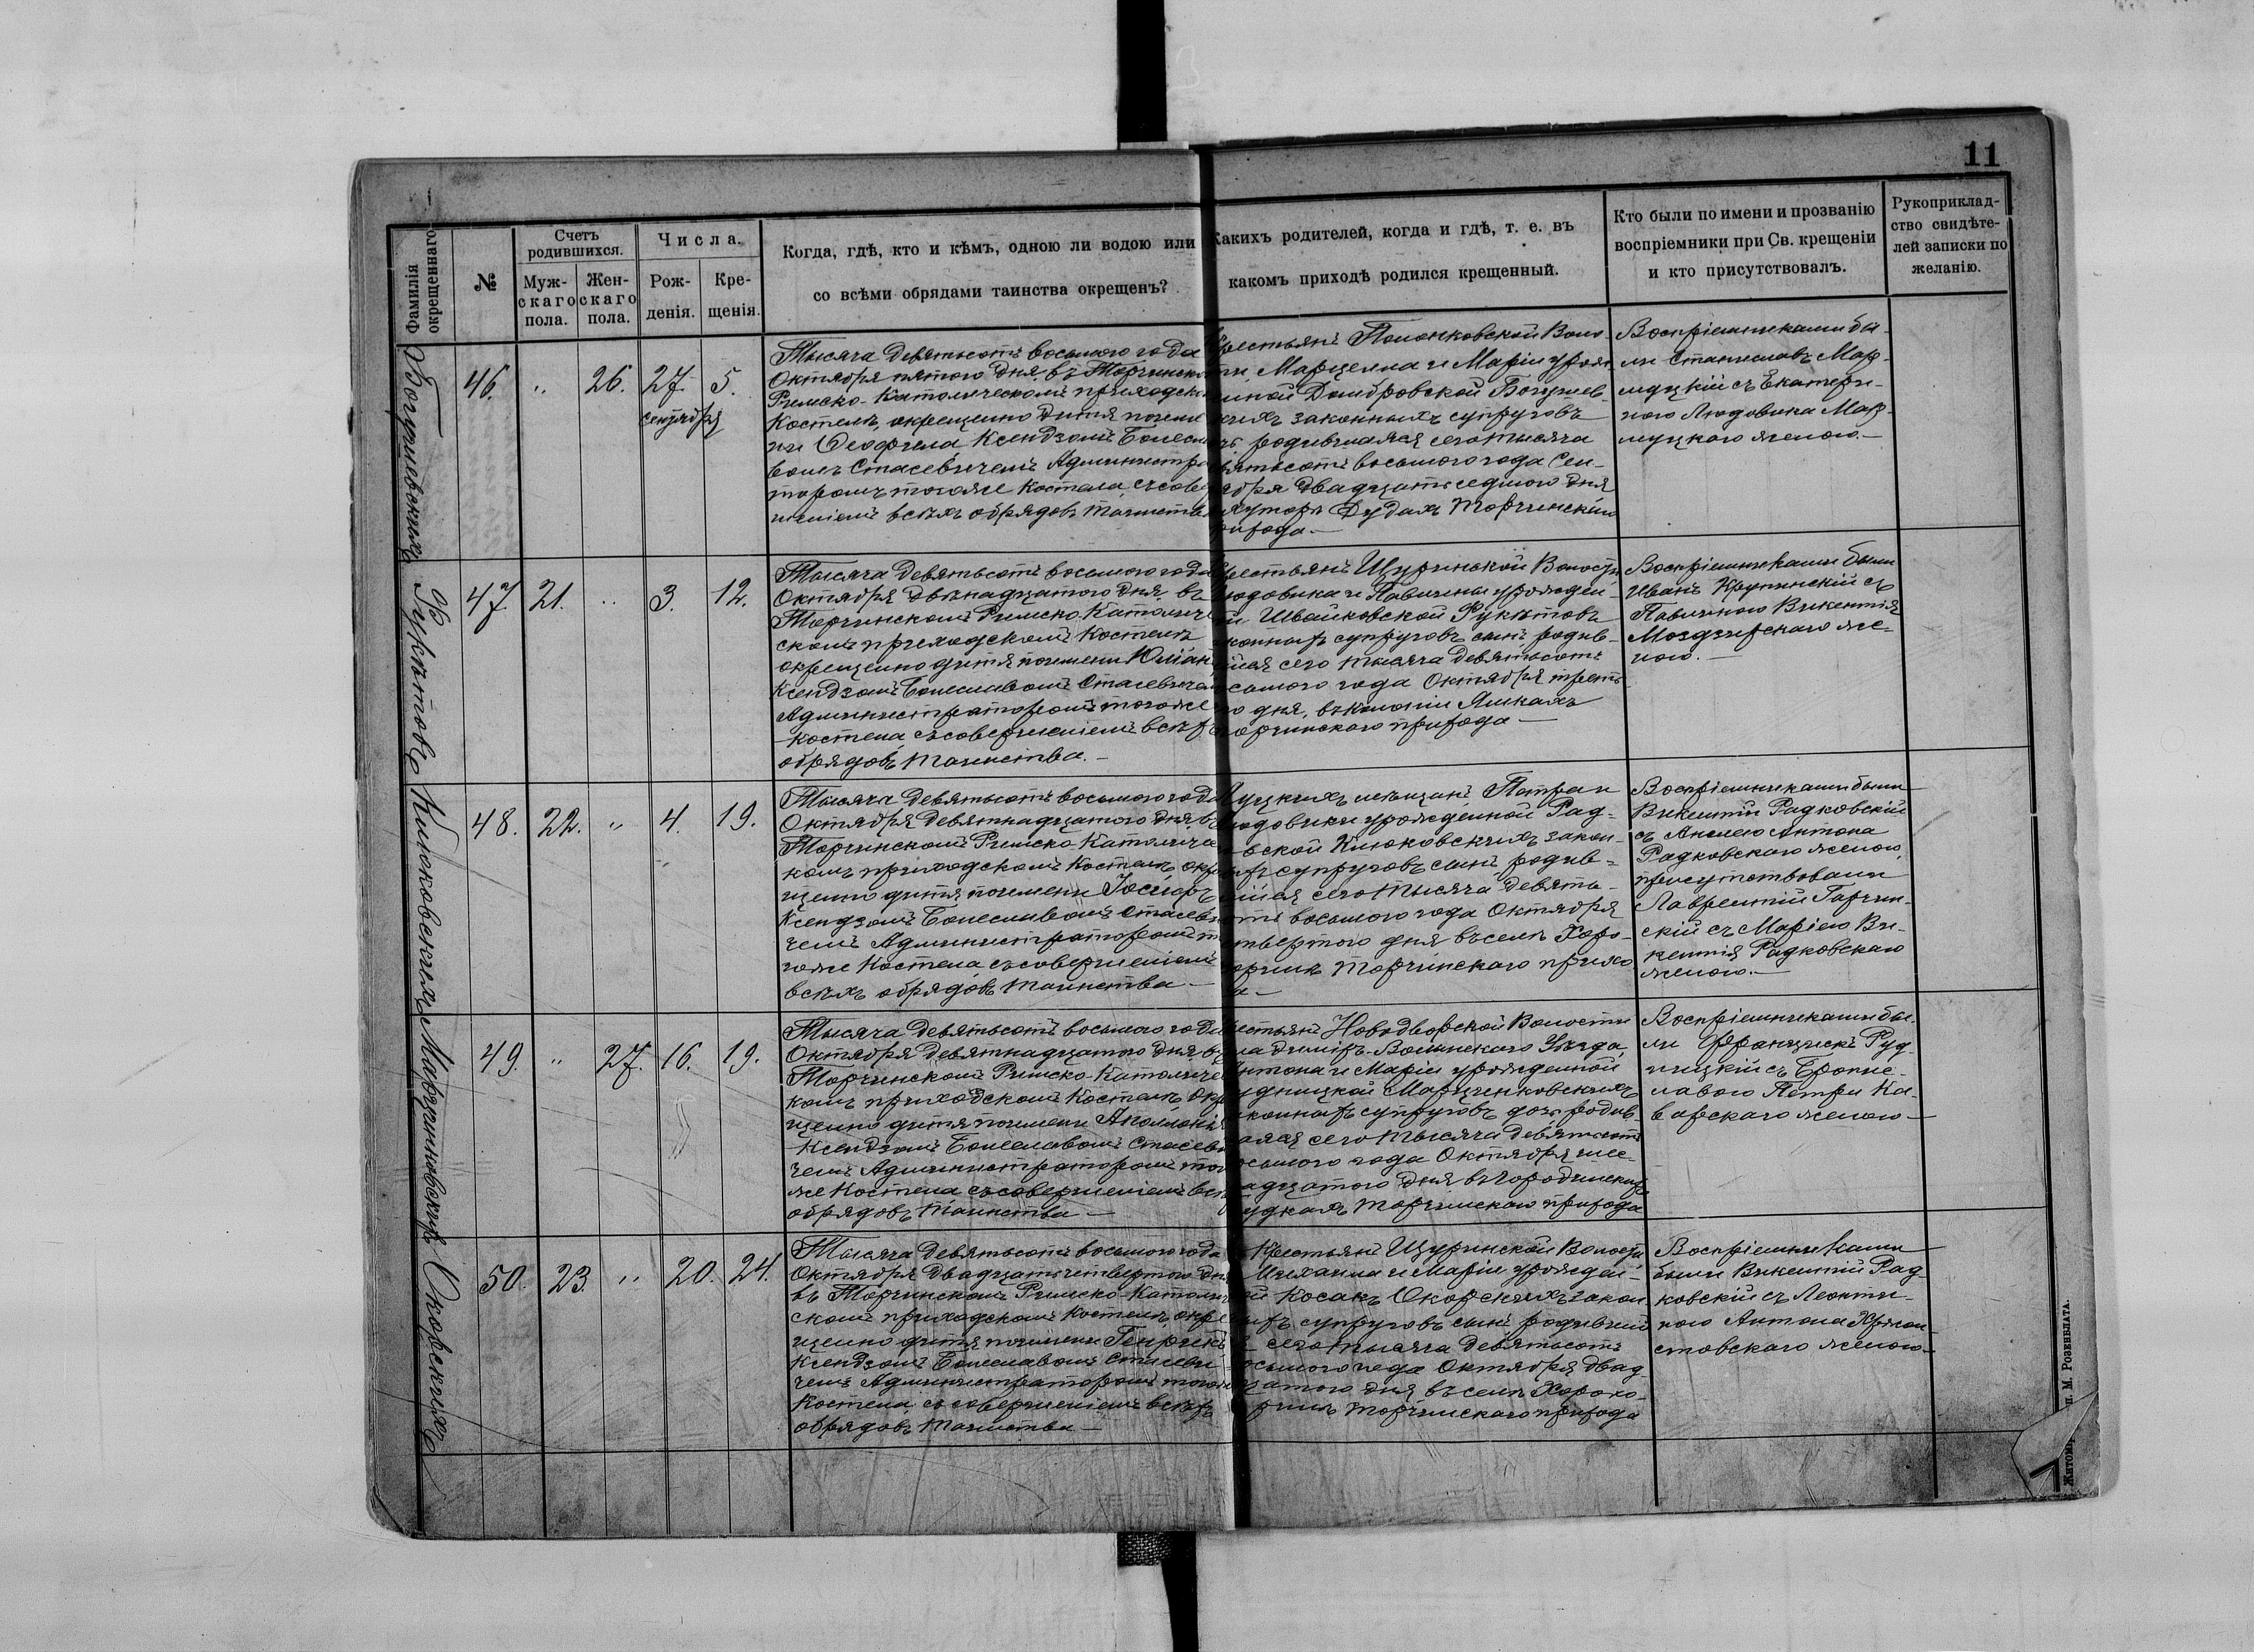 11
Фамилія окрещеннаго.
№
Счетъ родившихся.
Мужскаго пола.
Женскаго пола.
Числа.
Рожденія.
Крещенія.
Когда, гдѣ, кто и кѣмъ, одною ли водою или
со всѣми обрядами таинства окрещенъ?
Какихъ родителей, когда и гдѣ, т. е. въ
какомъ приходѣ родился крещенный.
Кто были по имени и прозванію
воспріемники при Св. крещеніи
и кто присутствовалъ.
Рукоприклад-
ство свидѣте-
лей записки по
желанію.
Богушевскихъ
46. " 26. 27. 5.
сентября
Тысяча девятьсотъ восьмого года
Октября пятого дня, въ Торчинско
Римско-Католическомъ приходско
Костелѣ, окрещено дитя по име
ни Ѳеофила Ксендзомъ Болесла
вомъ Стасевичемъ Администра
торомъ того же Костела, съ совер
шеніемъ всѣхъ обрядовъ таинства
рестьянъ Полонковской Воло-
ти, Марцелла и Маріи урож
нной Домбровской Богушев-
скихъ законныхъ супруговъ
родившаяся сего тысяча
вятьсотъ восьмого года Сен-
ября двадцать седмого дня
хуторѣ Дудахъ Торчинскаго
рихода.—
Воспріемниками бы-
ли Станиславъ Мар-
муцкій съ Екатери-
ною Людовика Мар-
муцкаго женою.—
Рукѣтовъ
47. 21. " 3. 12.
Тысяча девятьсотъ восьмого года
Октября двѣнадцатого дня, въ
Торчинскомъ Римско-Католиче
скомъ приходскомъ Костелѣ
окрещено дитя по имени Юліанъ
Ксендзомъ Болеславомъ Стасевиче
Администраторомъ того же
Костела, съ совершеніемъ всѣхъ
обрядовъ таинства.—
рестьянъ Щуринской Волости
юдовика и Павлины урожден-
й Швайковской Рукѣтовъ
конныхъ супруговъ сынъ родив-
ійся сего тысяча девятьсотъ
сьмого года Октября треть
го дня, въ колоніи Ялкахъ
орчинского прихода —
Воспріемниками были
Иванъ Крупинскій съ
Павлиною Викентія
Моздзирскаго же-
ною.—
Клюковскихъ
48. 22. " 4. 19.
Тысяча девятьсотъ восьмого года
Октября девятнадцатого дня, въ
Торчинскомъ Римско-Католиче
комъ приходскомъ Костелѣ окре
щено дитя по имени Іосифъ
Ксендзомъ Болеславомъ Стасев
чемъ Администраторомъ т
гоже Костела съ совершеніемъ
всѣхъ обрядовъ таинства —
уцкихъ мѣщанъ Петра и
юдовики урожденной Рад-
вской Клюковскихъ закон-
ыхъ супруговъ сынъ, родив-
ійся сего тысяча девять-
отъ восьмого года Октября
твертого дня въ селѣ Хоро-
оринѣ Торчинскаго прихо
а —
Воспріемниками были
Викентій Радковскій
съ Анелею Антона
Радковскаго женою,
присутствовали
Лаврентій Гарчин-
скій съ Маріею Ви-
кентія Радковскаго
женою.—
Марцинковскихъ
49. " 27. 16. 19.
Тысяча девятьсотъ восьмого года
Октября девятнадцатого дня, въ
Торчинскомъ Римско-Католиче
комъ приходскомъ Костелѣ окре
щено дитя по имени Аполлонія
Ксендзомъ Болеславомъ Стасев
чемъ Администраторомъ того
же Костела съ совершеніемъ всѣ
обрядовъ таинства —
естьянъ Новодворской Волости
ладиміръ-Волынскаго Уѣзда,
Антона и Маріи урожденной
удницкой Марцинковскихъ
конныхъ супруговъ дочь родив
аяся сего тысяча девятьсотъ
осьмого года Октября шес-
адцатого дня въ Городинских
удкахъ Торчинскаго прихода
Воспріемниками бы-
ли Францискъ Руд-
ницкій съ Бронис-
лавою Петра Ка-
варскаго женою —
Окорскихъ
50. 23. " 20. 24.
Тысяча девятьсотъ восьмого года
Октября двадцать четвертого дня
въ Торчинскомъ Римско-Католич
скомъ приходскомъ Костелѣ окре
щено дитя по имени Генрикъ
Ксендзомъ Болеславомъ Стасеви
чемъ Администраторомъ тогоже
Костела, съ совершеніемъ всѣхъ
обрядовъ таинства —
Крестьянъ Щуринской Волости
Михаила и Маріи урожден-
ой Косакъ Окорскихъ закон
ыхъ супруговъ сынъ родившій
сего тысяча девятьсотъ
осьмого года Октября двад
цатого дня въ селѣ Хорохо-
ринѣ Торчинскаго прихода
Воспріемниками
были Викентій Рад-
ковскій съ Леонти-
ною Антона
женою —
М. Розенблата.
Житомиръ